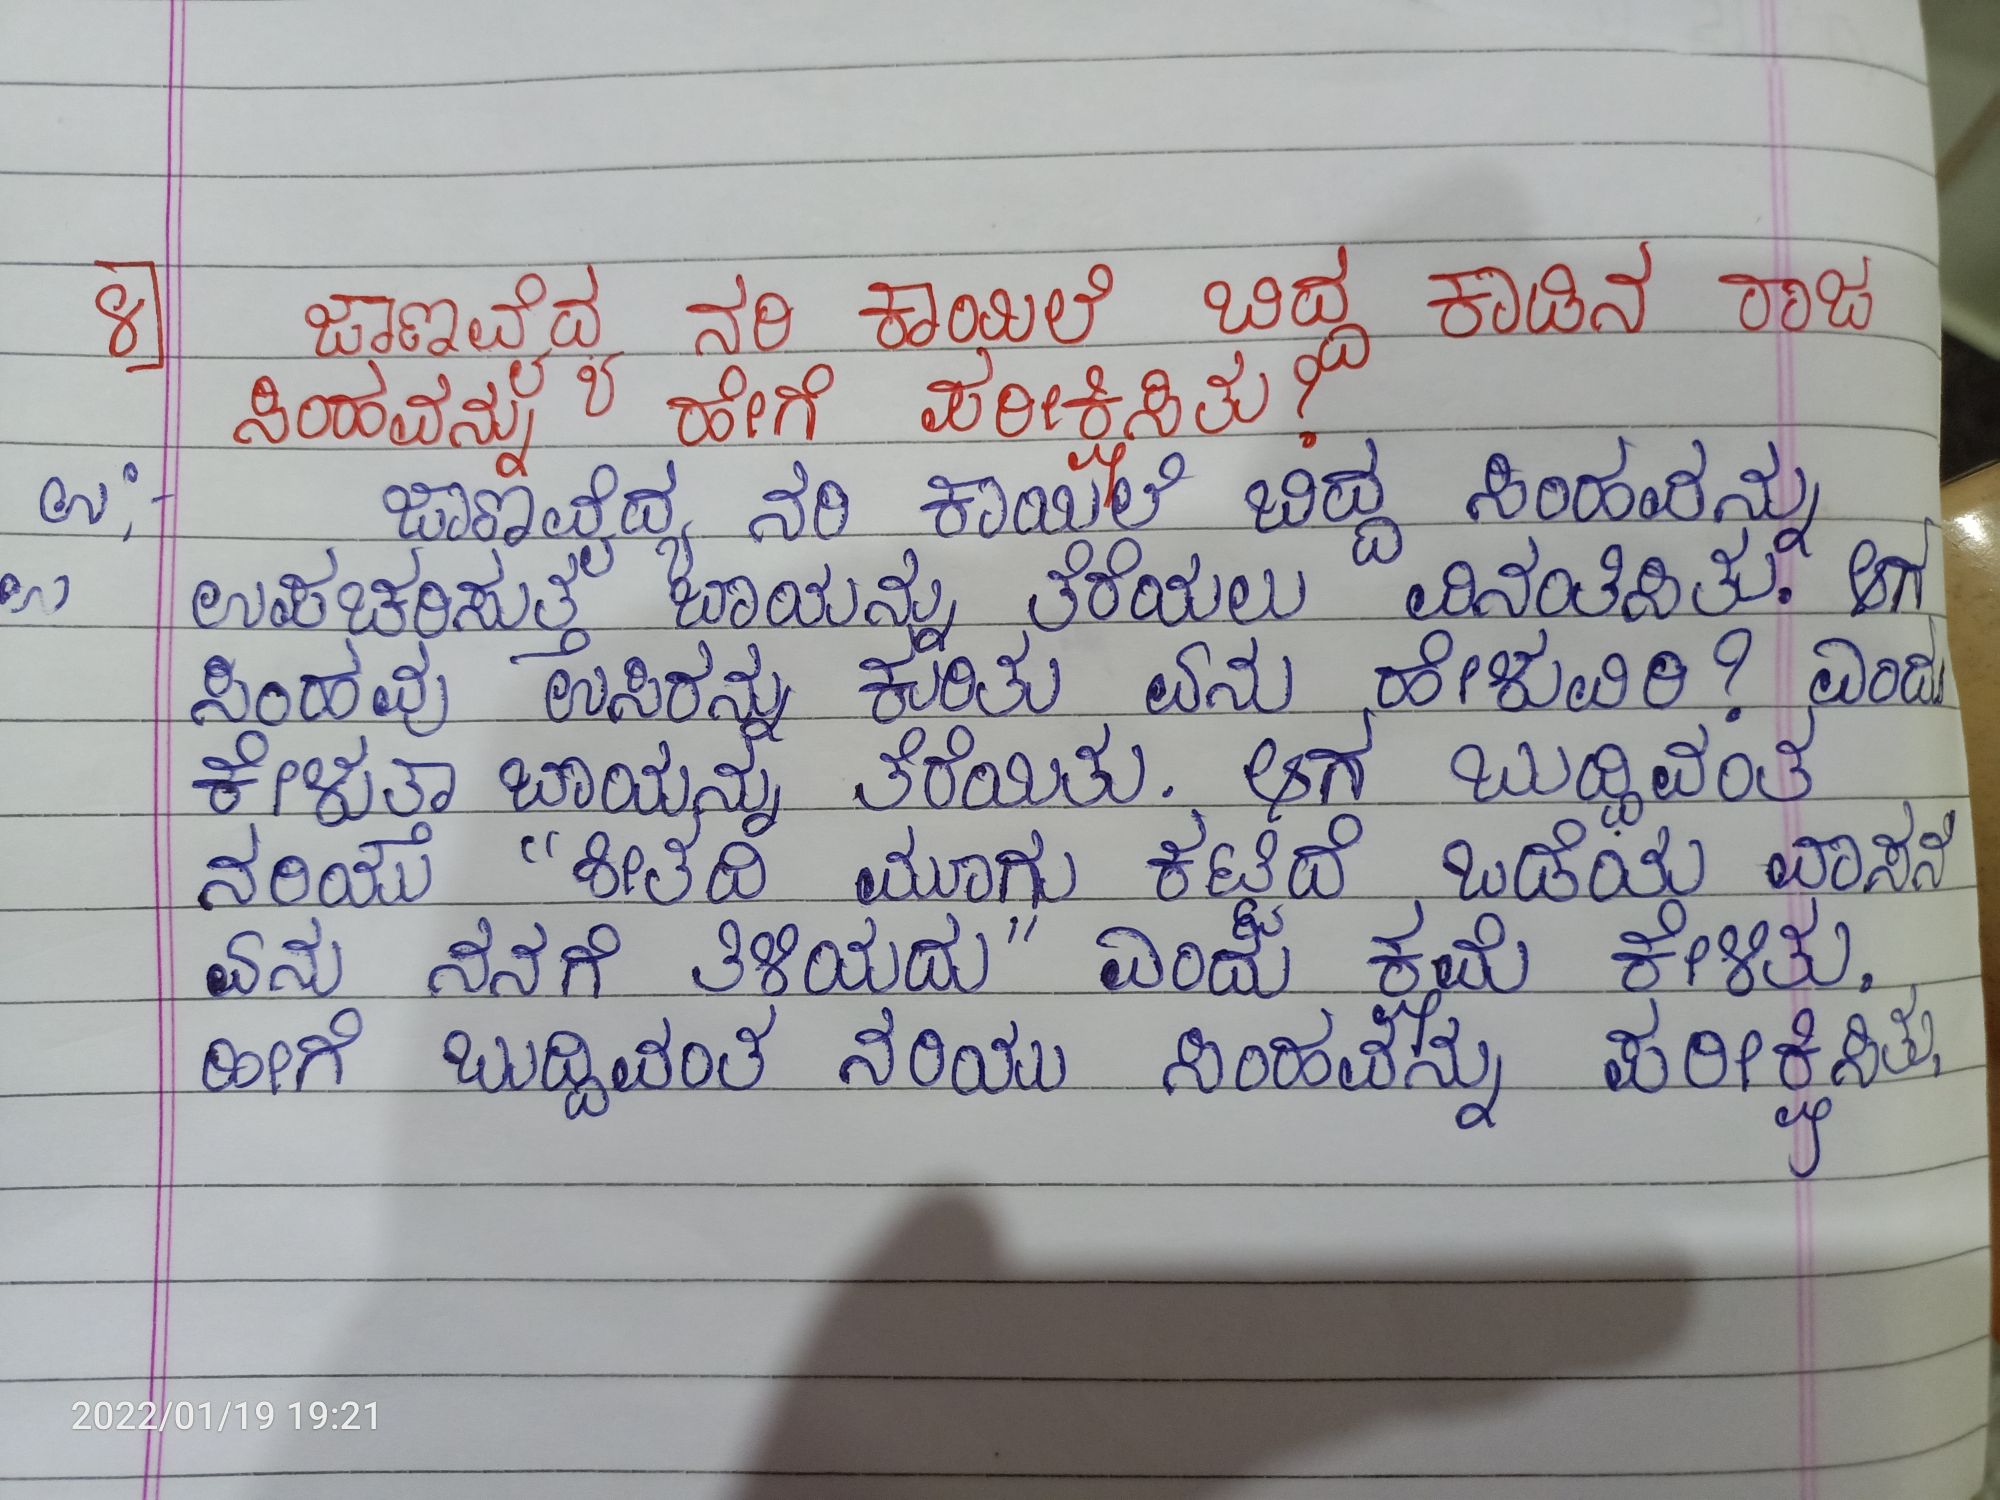 ೪] ಜಾಣವೈದ್ಯ ನರಿ ಕಾಯಿಲೆ ಬಿದ್ದ ಕಾಡಿನ ರಾಜ
ಸಿಂಹವನ್ನು ಹೇಗೆ ಪರೀಕ್ಷಿಸಿತು?
ಉ:- ಜಾಣವೈದ್ಯ ನರಿ ಕಾಯಿಲೆ ಬಿದ್ದ ಸಿಂಹವನ್ನು
ಉ ಉಪಚರಿಸುತ್ತ ಬಾಯನ್ನು ತೆರೆಯಲು ವಿನಂತಿಸಿತು. ಆಗ
ಸಿಂಹವು ಉಸಿರನ್ನು ಕುರಿತು ಏನು ಹೇಳುವಿರಿ? ಎಂದು
ಕೇಳುತಾ ಬಾಯನ್ನು ತೆರೆಯಿತು. ಆಗ ಬುದ್ಧಿವಂತ
ನರಿಯು "ಶೀತದಿ ಮೂಗು ಕಟ್ಟಿದೆ ಒಡೆಯ ವಾಸನೆ
ಏನು ನನಗೆ ತಿಳಿಯದು" ಎಂದು ಕ್ಷಮೆ ಕೇಳಿತು.
ಹೀಗೆ ಬುದ್ಧಿವಂತ ನರಿಯು ಸಿಂಹವನ್ನು ಪರೀಕ್ಷಿಸಿತು.
2022/01/19 19:21